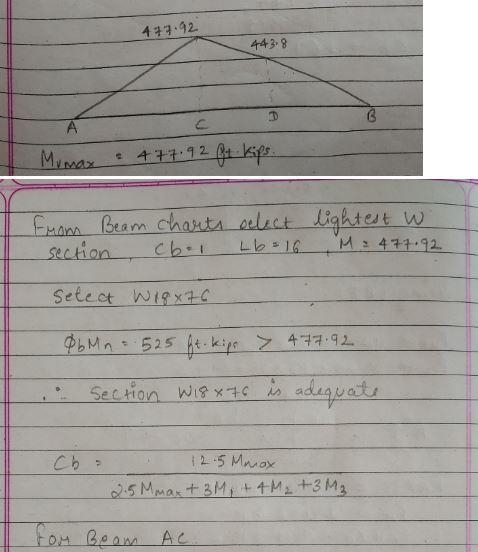 477.92
443.8
A
C
D
B
Mumax = 477.92 ft.kips.
From Beam charts select lightest W
section, Cb=1 Lb=16, M = 477.92
Select W18x76
ϕbMn = 525 ft.kips > 477.92
∴ Section W18x76 is adequate
Cb = 12.5 Mmax
2.5 Mmax + 3M1 + 4M2 + 3M3
For Beam AC